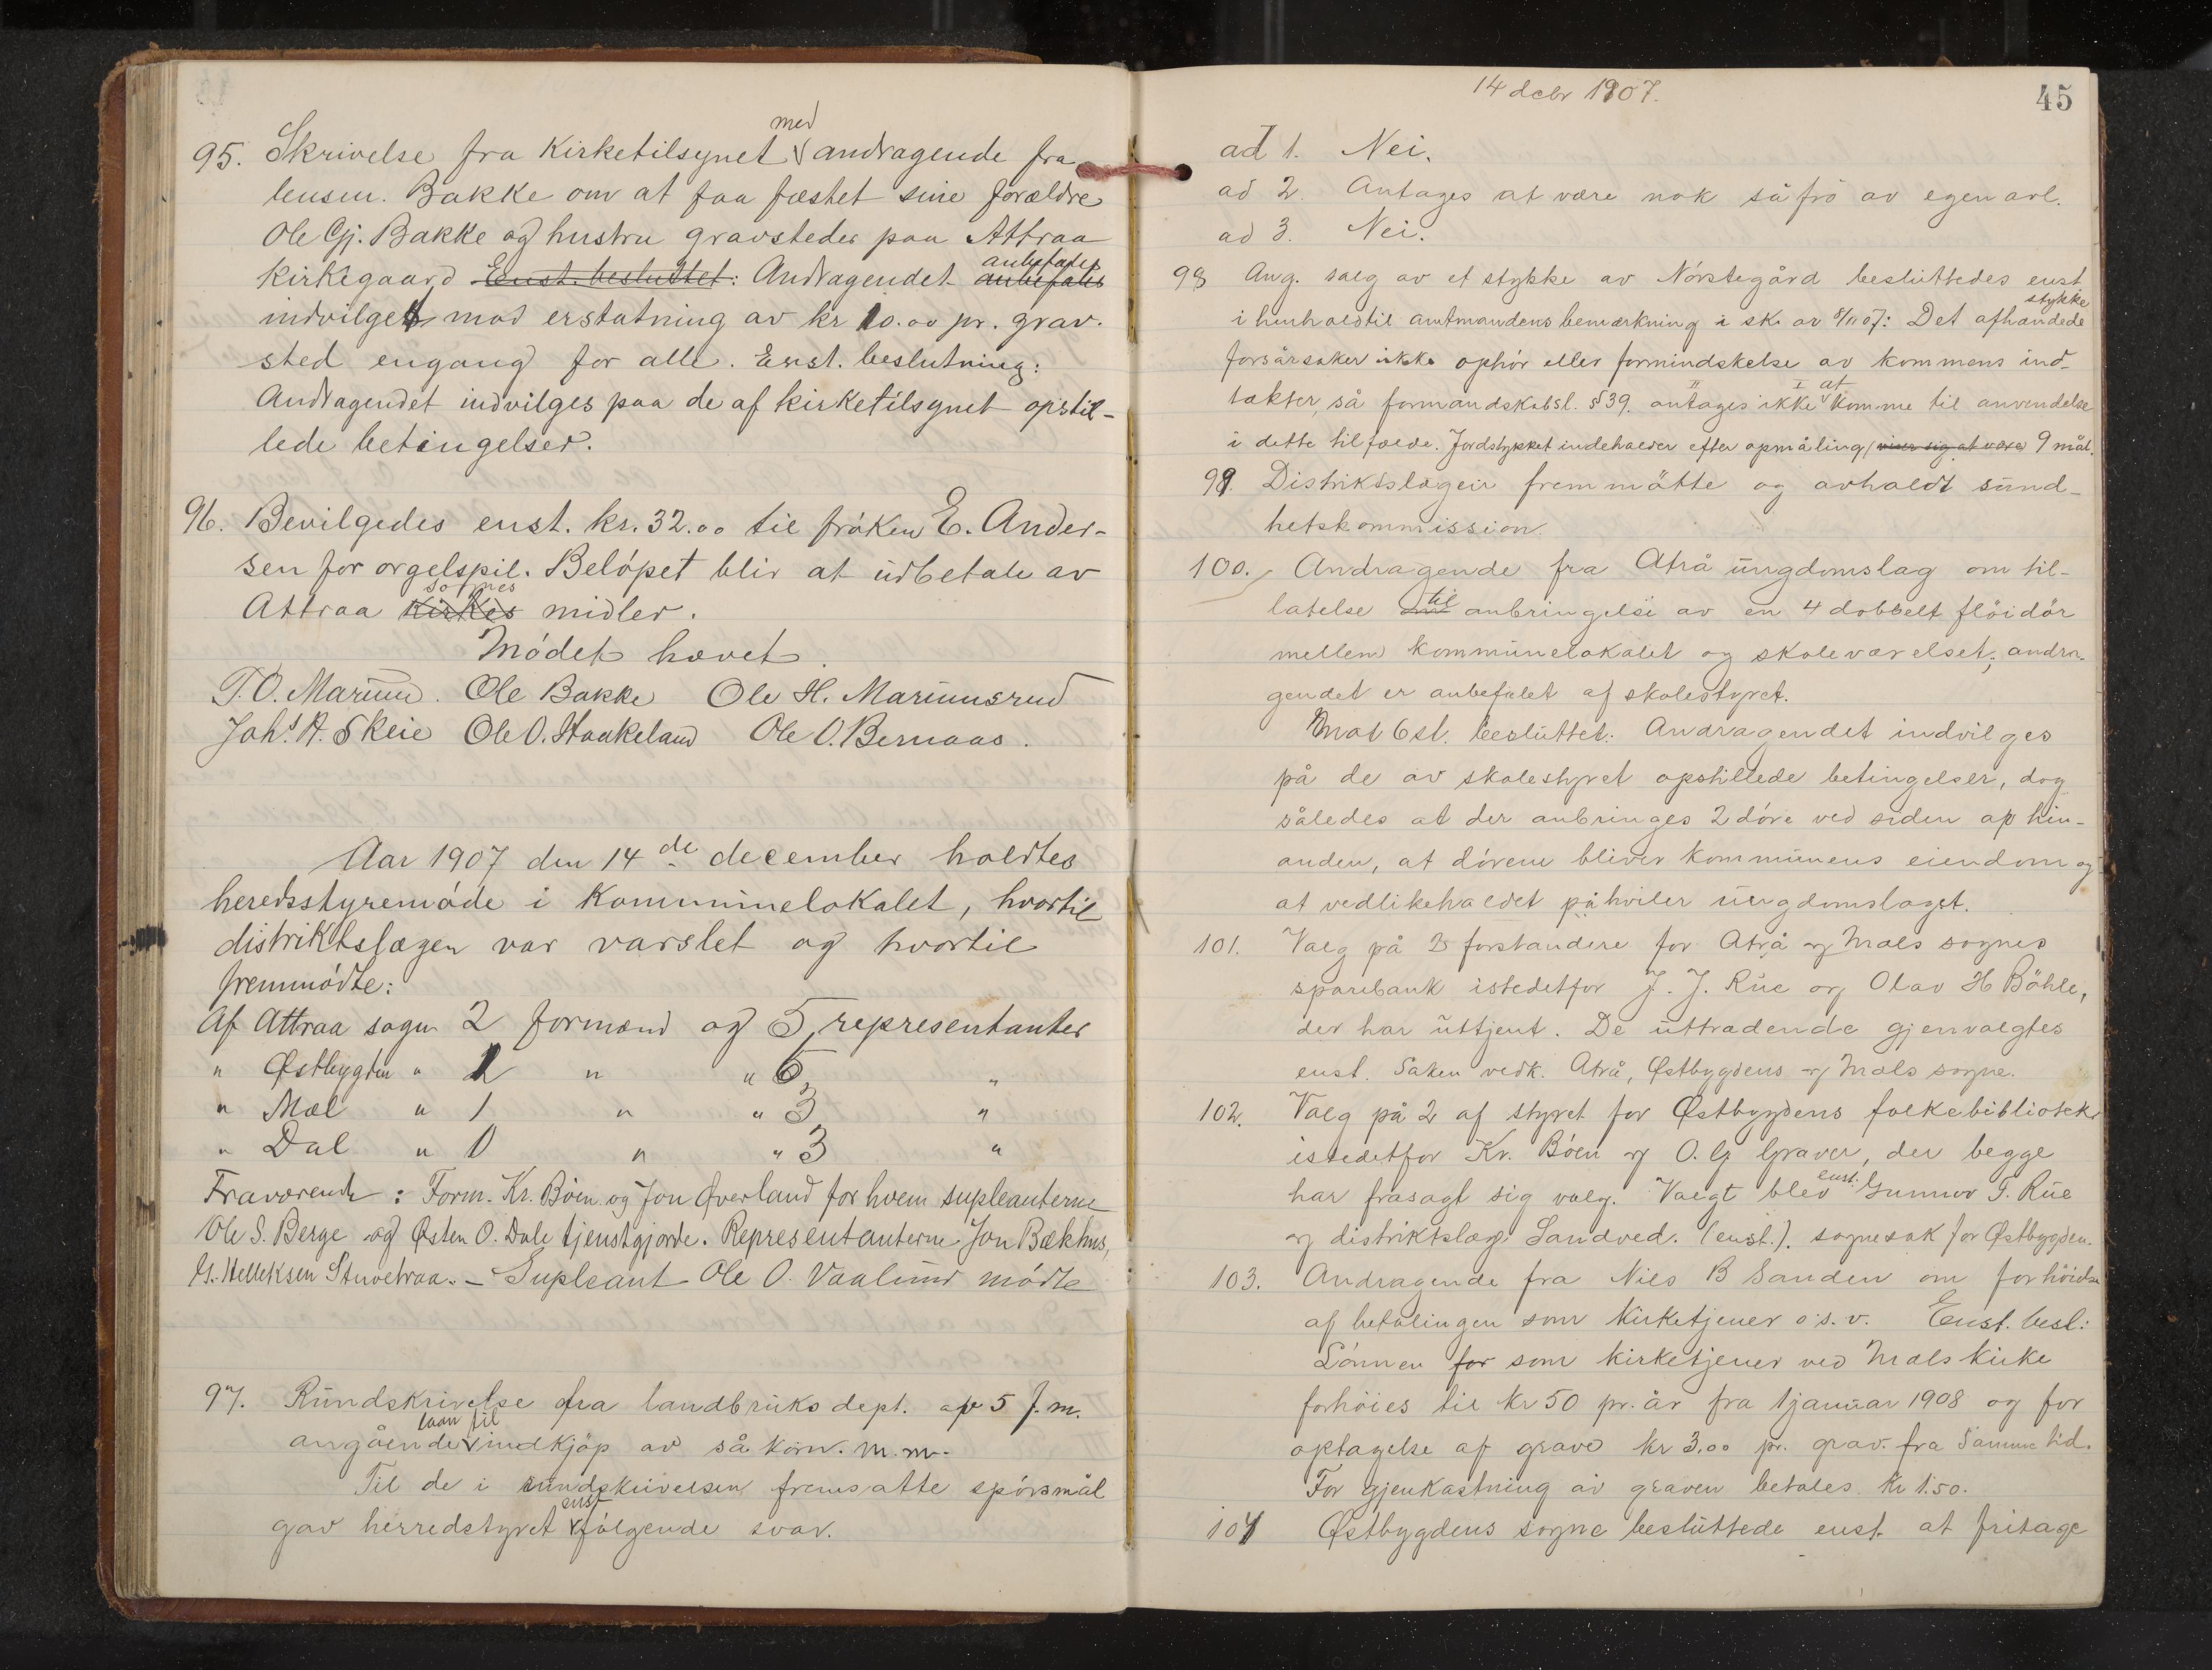 95. Skrivelse fra Kirketilsynet med andragende fra
lensm. Bakke om at faa fæstet sine forældre
Ole Gj. Bakke og hustru gravsteder paa Attraa
Kirkegaard Enst. besluttet: Andragendet anbefales anbefales
indvilget mod erstatning av kr 10.00 pr. grav-
sted engang for alle. Enst. beslutning:
Andragendet indvilges paa de af kirketilsynet opstil-
lede betingelser.
96. Bevilgedes enst. kr. 32.00 til fröken E. Ander-
sen for orgelspil. Belöpet blir at udbetale av
Attraa Kirkes sognes midler.
Mödet hævet.
T. O. Marum. Ole Bakke Ole H. Marumsrud
Johs. A. Skeie Ole O. Haakeland Ole O. Bernaas.
Aar 1907 den 14de december holdtes
heredsstyremöde i Kommunelokalet, hvortil
distriktslægen var varslet og hvortil
fremmödte:
Af Attraa sogn 2 formænd og 5 representanter
" Østbygden " 2 " " 6 "
" Mæl " 1 " " 3 "
" Dal " 0 " " 3 "
Fraværende: Form. Kr. Böen og Jon Øverland for hvem supleanterne
Ole S. Berge og Østen O. Dale tjenstgjorde. Representanterne Jon Bækhus,
G. Helleksen Stuvetraa. — Supleant Ole O. Vaalund mödte
97. Rundskrivelse fra landbruksdept. af 5 f. m.
angående laan til indkjöp av såkorn. m.m.
Til de i rundskrivelsen fremsatte spörsmål
gav herredstyret enst fölgende svar.
14 debr 1907.
45
ad 1. Nei.
ad 2. Antages at være nok såfrö av egen avl.
ad 3. Nei.
98 Ang. salg av et stykke av Nörstegård besluttedes enst
i henhold til amtmandens bemærkning i sk. av 8/11 07: Det afhændede stykke
forsårsaker ikke ophör eller formindskelse av kommens ind-
tækter, så formandskabsl. § 39. antages ikke at komme til anvendelse
i dette tilfælde. Jordstykket indeholder efter opmåling viser sig at være 9 mål.
99 Distriktslægen fremmötte og avholdt sund-
hetskommission.
100. Andragende fra Atrå ungdomslag om til-
latelse om til anbringelse av en 4 dobbelt flöidör
mellem kommunelokalet og skoleværelset; andra-
gendet er anbefalet af skolestyret.
Mot 6 st. besluttet: Andragendet indvilges
på de av skolestyret opstillede betingelser, dog
således at der anbringes 2 döre ved siden af hin-
anden, at dörene bliver kommunens eiendom og
at vedlikeholdet påhviler ungdomslaget.
101. Valg på 2 forstandere for Atrå og Mæls sognes
sparebank istedetfor J. J. Rue og Olav H Böhle,
der har uttjent. De uttrædende gjenvalgtes
enst. Saken vedk. Atrå, Østbygdens og Mæls sogne.
102. Valg på 2 af styret for Østbygdens folkebibliotek
istedetfor Kr. Böen og O. G Graver, der begge
har frasagt sig valg. Valgt blev enst. Gunnar T. Rue
og distriktslæge Landved. (enst.). sognesak for Østbygden.
103. Andragende fra Nils B Sanden om forhöielse
af betalingen som Kirketjener o.s.v. Enst. besl:
Lönnen for som kirketjener ved Mæls kirke
forhöies til kr 50 pr. år fra 1 januar 1908 og for
optagelse af grave kr 3.00 pr. grav. fra samme tid.
For gjenkastning av graven betales kr 1.50.
104 Østbygdens sogne besluttede enst. at fritage